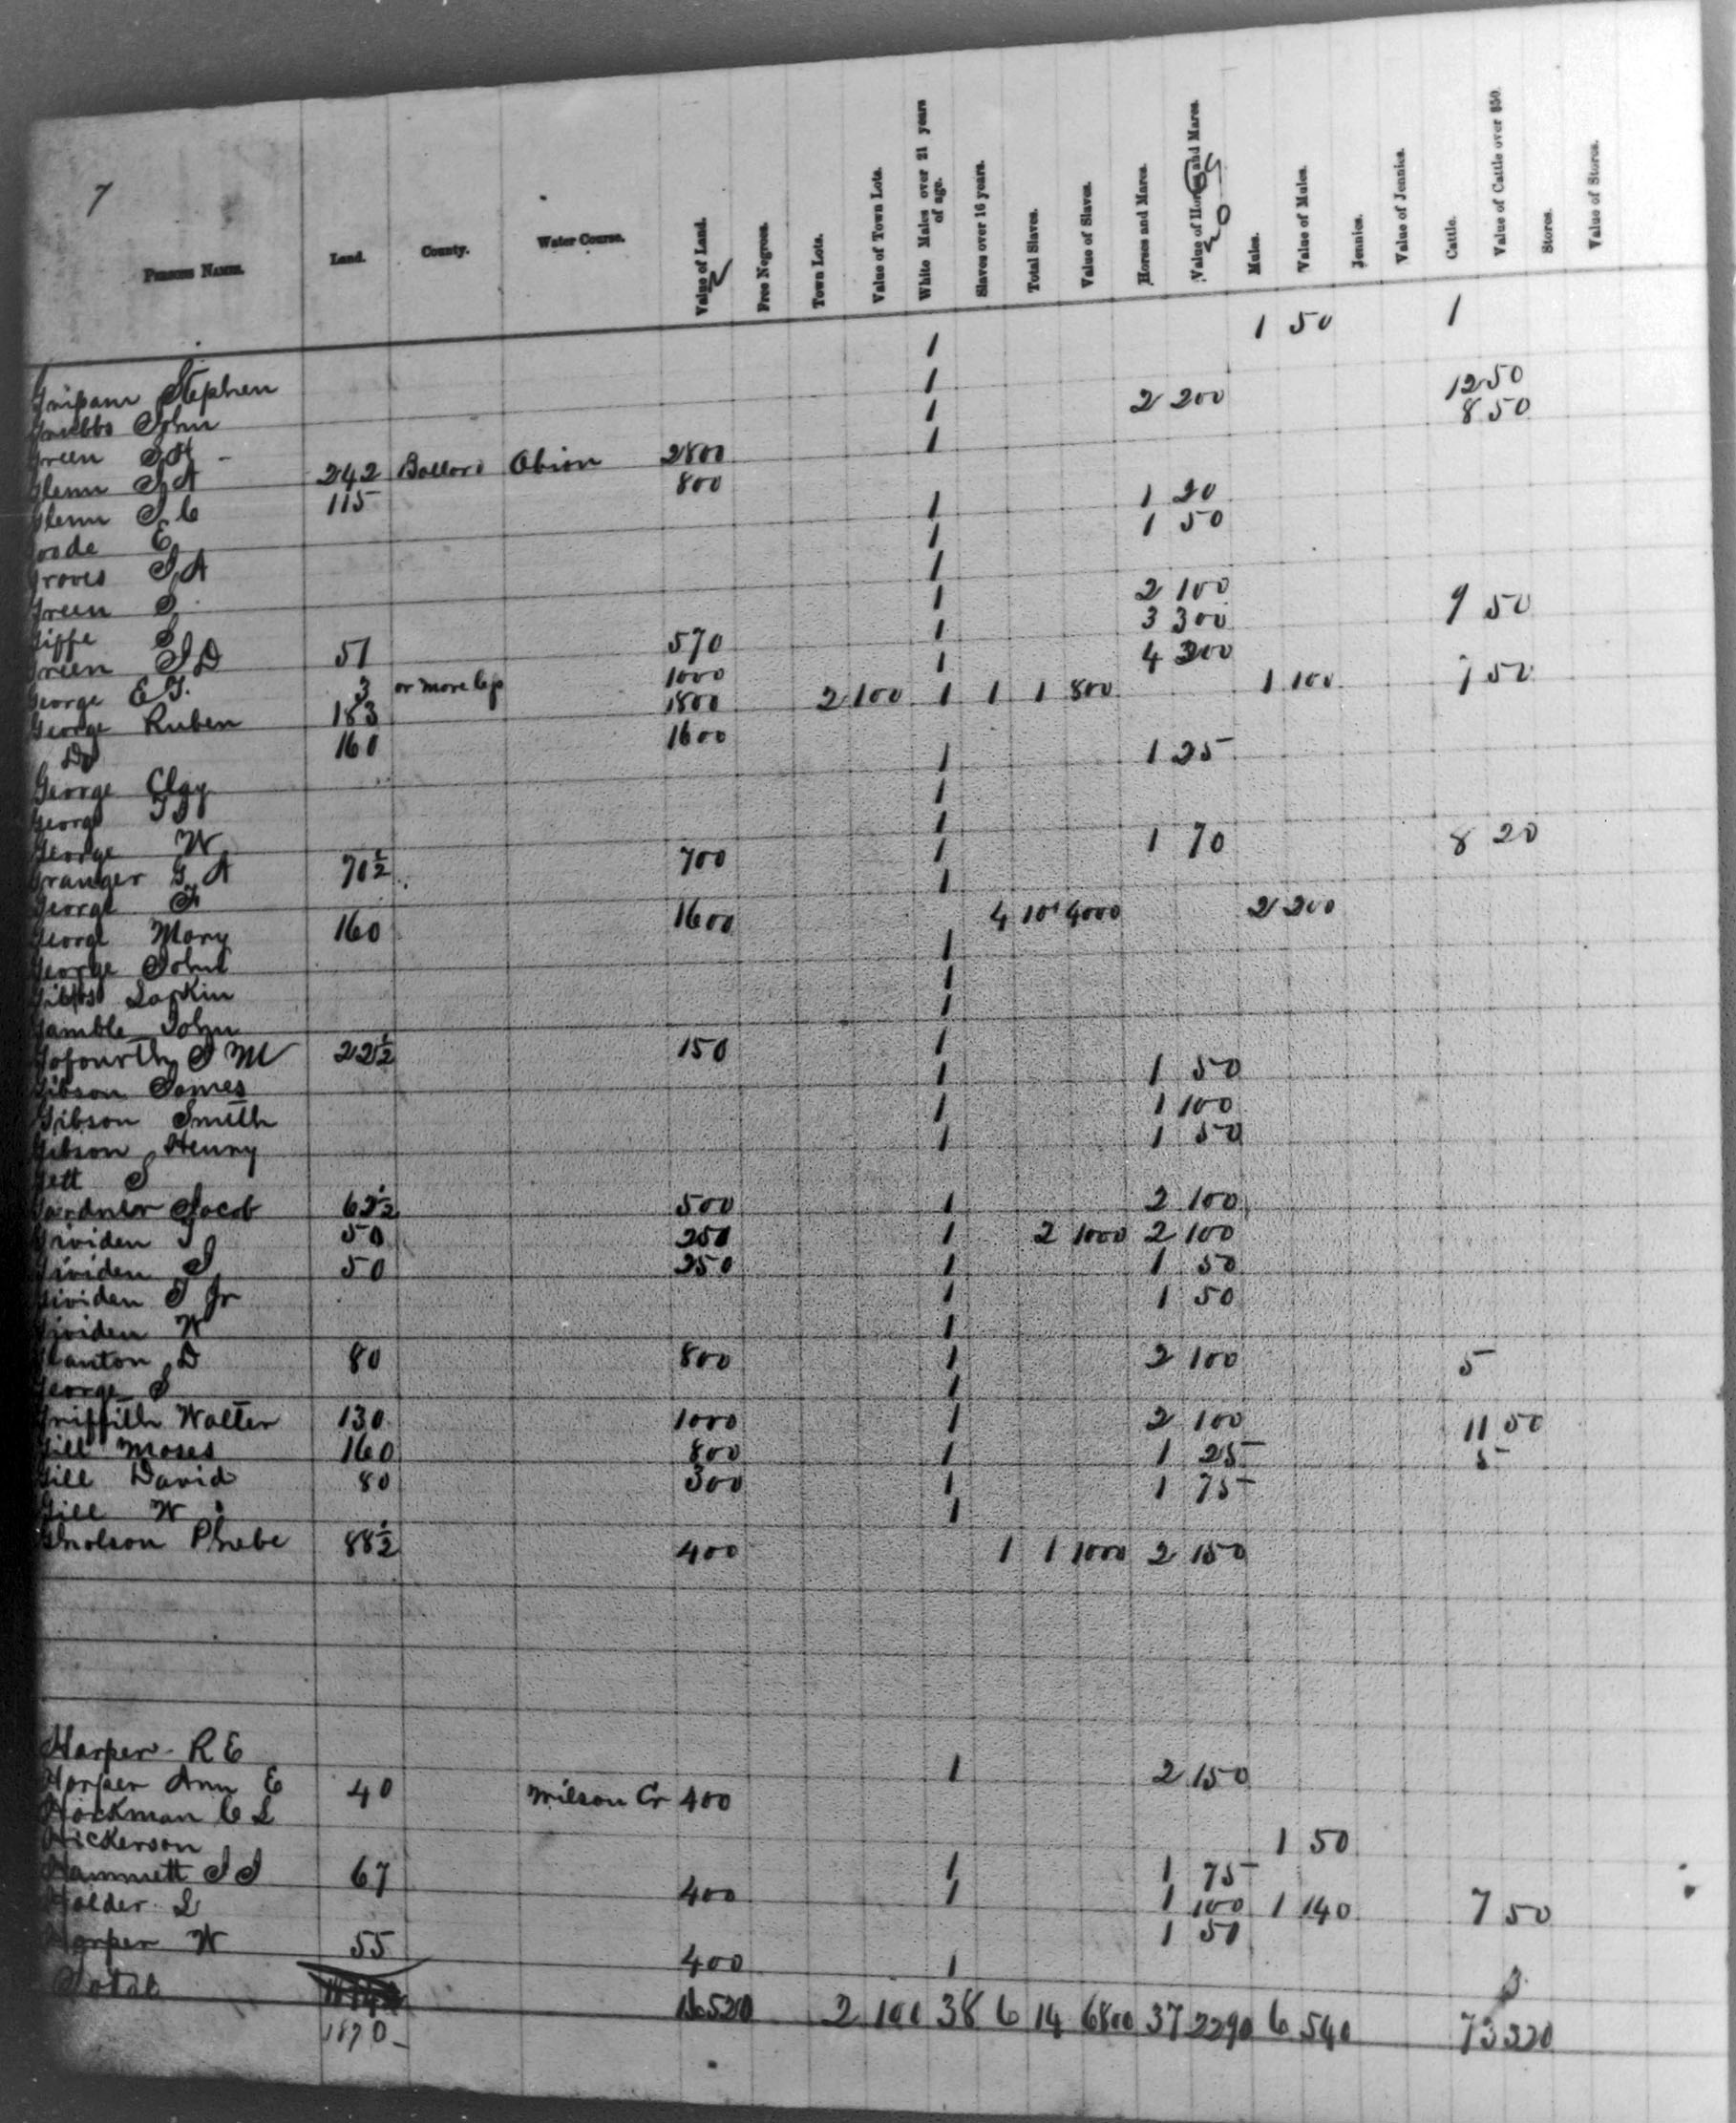 7
PERSONS NAMES. Land. County. Water Course. Value of Land. Free Negroes. Town Lots. Value of Town Lots. White Males over 21 years of age. Slaves over 16 years. Total Slaves. Value of Slaves. Horses and Mares. Value of Horses and Mares. Mules. Value of Mules. Jennies. Value of Jennies. Cattle. Value of Cattle over $50. Stores. Value of Stores.
Stephen 1 1 50 1
Grubbs John 1
Green 1 2 200 12 50
Glenn J A 242 Ballard Obion 2800 1 8 50
Glenn J C 115 800
Goode E 1 1 20
Groves J A 1 1 50
Green J 1
1 2 100
Green J D 51 570 1 3 300 9 50
George E T. 3 or more lep 1000 1 4 300
George Ruben 183 1800 2 100 1 1 1 800 1 100 7 50
Do 160 1600
George Clay 1 1 25
George 1
George W 1
Granger G A 70½ 700 1 1 70 8 20
George 1
George Mary 160 1600 4 10 4000 2 200
George John 1
Gibbs Larkin 1
Gamble John 1
Gofourth J M 22½ 150 1
Gibson James 1 1 50
Gibson Smith 1 1 100
Gibson Henry 1 1 50
Gett J
Gardner Jacob 62½ 500 1 2 100
Gividen 50 250 1 2 1000 2 100
Gividen J 50 250 1 1 50
Gividen J Jr 1 1 50
Gividen W 1
Glanton D 80 800 1 2 100 5
George J 1
Griffith Walter 130 1000 1 2 100 11 50
Gill Moses 160 800 1 1 25 5
Gill David 80 300 1 1 75
Gill W 1
Gholson Phebe 88½ 400 1 1 1000 2 150
Harper R E 1 2 150
Harper Ann E 40 Wilson Cr 400
Hockman C L
Hickerson 1 50
Hammett J J 67 400 1 1 75
Holder L 1 1 100 1 140 7 50
Harper W 55 400 1 1 50
Total 1870 16520 2 100 38 6 14 6800 37 2290 6 540 73 320